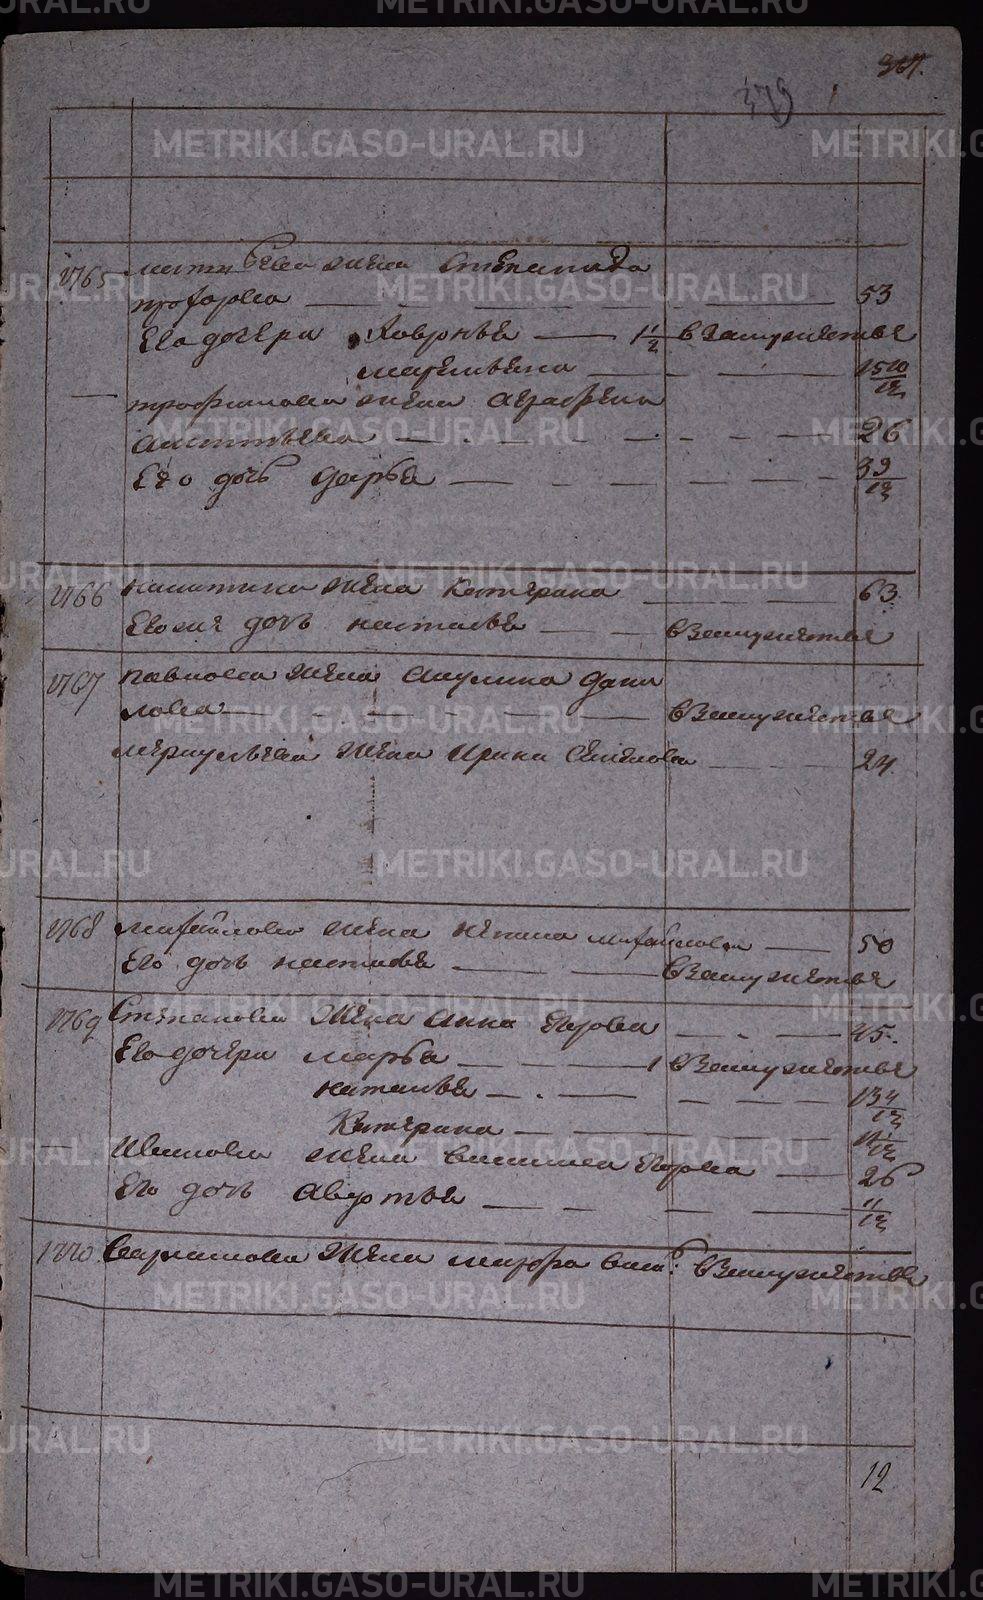 379
1765 Матвеева жена Степанида
прохорова — 53
Его дочери Ховронья — 1 1/2 в Замужестве
Маремьяна — 15 10/12
трофимова жена Аграфена
— 26
Его дочь Дарья — 3 9/12
1766 Никитина жена Катерина — 63
дочь настасья — в Замужестве
1767 павлова жена Акулина Дани
лова — в Замужестве
Меркульева жена Ирина — 24.
1768 Михайлова жена Михайлова — 50
Его дочь настасья — в Замужестве
1769 Степанова жена Анна Егорова — 45.
Его дочери Марья — 1 в Замужестве
наталья — 13 4/12
Катерина —
Иванова жена Василиса Егорова — 26
Его дочь Авдотья — 11/12
1770. жена Марфа Васи: в Замужестве
12
METRIKI.GASO-URAL.RU